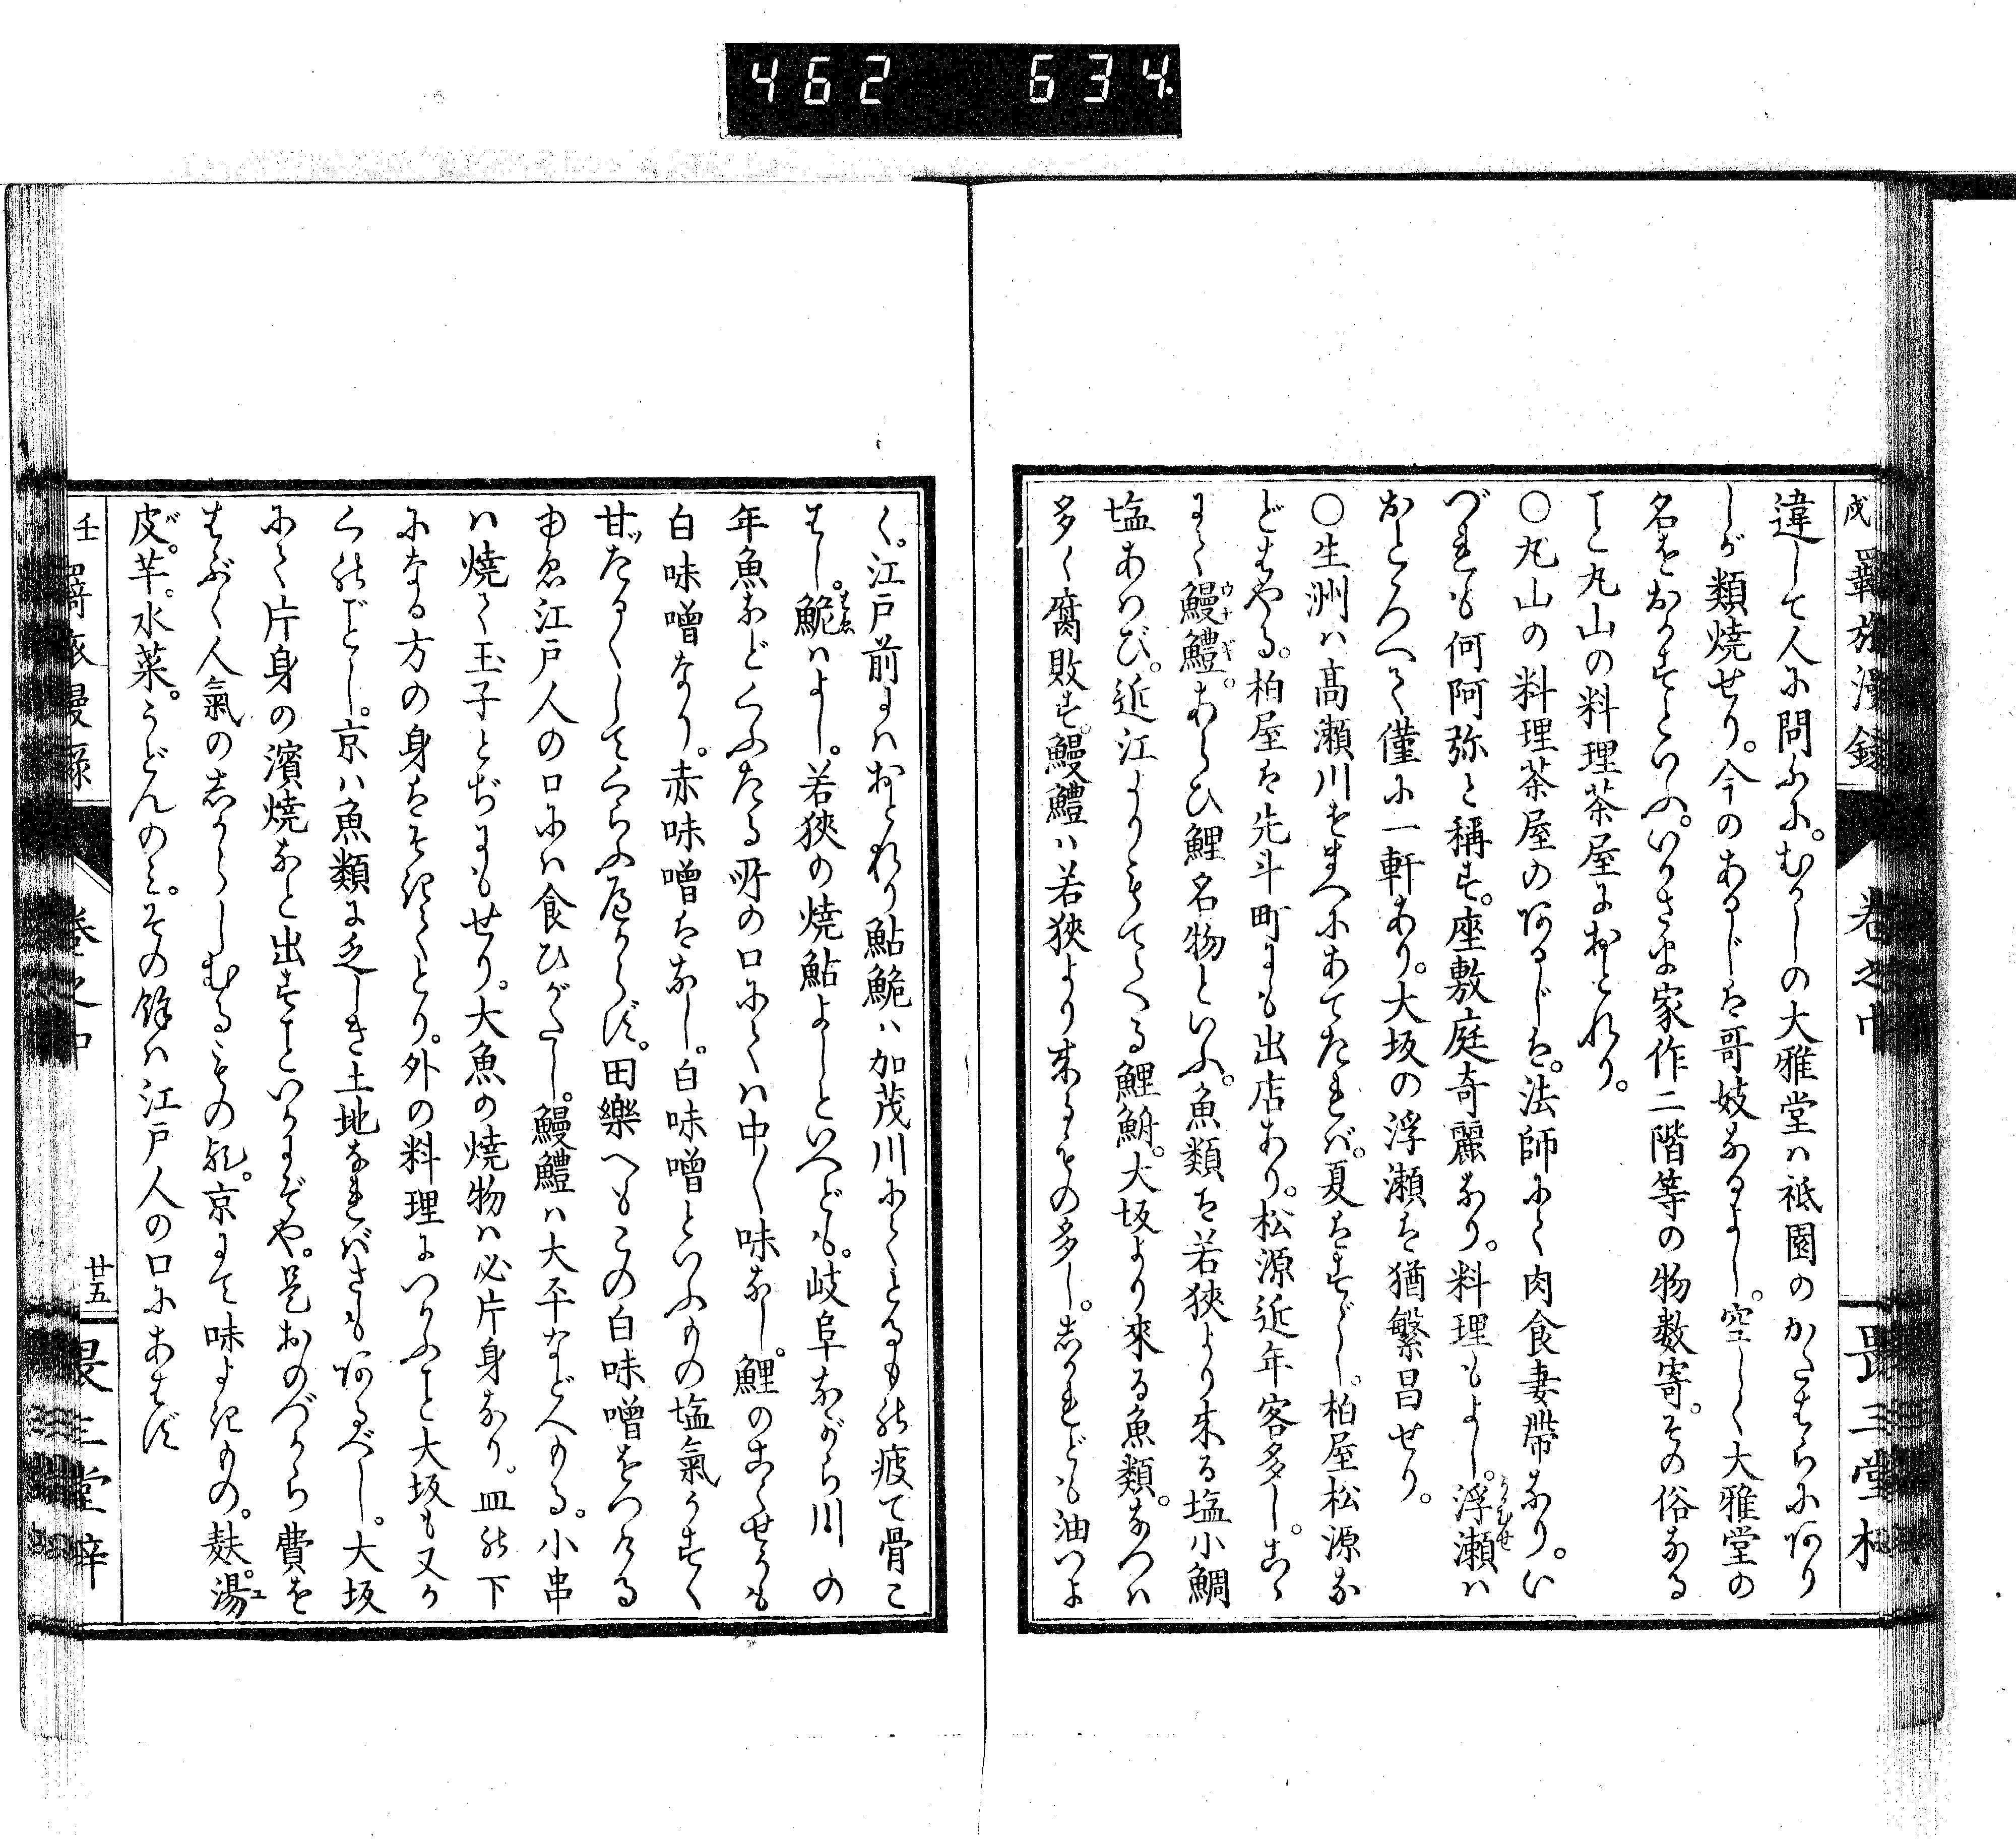 462 634
戌 羇旅漫録 巻之中 畏三堂梓
違して人に問ふに。むかしの大雅堂は祇園のかたはらにあり
しが類焼せり。今のあるじは哥妓なるよし。空しく大雅堂の
名をおかすといふ。いかさま家作二階等の物数寄。その俗なる
こと丸山の料理茶屋におとれり。
○丸山の料理茶屋のあるじは。法師にて肉食妻帯なり。い
づれも何阿弥と稱す。座敷庭奇麗なり。料理もよし。浮瀬は
おとろへて僅に一軒あり。大坂の浮瀬は猶繁昌せり。
○生洲は高瀬川をまへにあてたれば。夏はすゞし。柏屋松源な
どはやる。柏屋は先斗町にも出店あり。松源近年客多し。こゝ
にて鰻鱧。あらひ鯉名物といふ。魚類は若狭より来る塩小鯛
塩あはび。近江よりもてくる鯉鮒。大坂より來る魚類。なつは
多く腐敗す。鰻鱧は若狭より来るもの多し。しかれども油つよ
く。江戸前にはおとれり鮎鮠は加茂川にてとるもの疲て骨こ
はし。鮠はよし。若狭の焼鮎よしといへども。岐阜ながら川の
年魚などくふたる所の口にては中々味なし。鯉のこくせうも
白味噌なり。赤味噌はなし。白味噌といふもの塩氣うすく
甘ッたるくしてくらふべからず。田樂へもこの白味噌をつくる
ゆゑ江戸人の口には食ひがたし。鰻鱧は大平などへもる。小串
は焼て玉子とぢにもせり。大魚の焼物は必片身なり。皿の下
になる方の身はそぎてとり。外の料理につかふこと大坂も又か
くのごとし。京は魚類に乏しき土地なればさもあるべし。大坂
にて片身の濱焼など出すこといかにぞや。是おのづから費を
はぶく人氣のしからしむるもの歟。京にて味よきもの。麸。湯
皮。芋。水菜。うどんのみ。その餘は江戸人の口にあはず
壬 羇旅漫録 巻之中 廿五 畏三堂梓